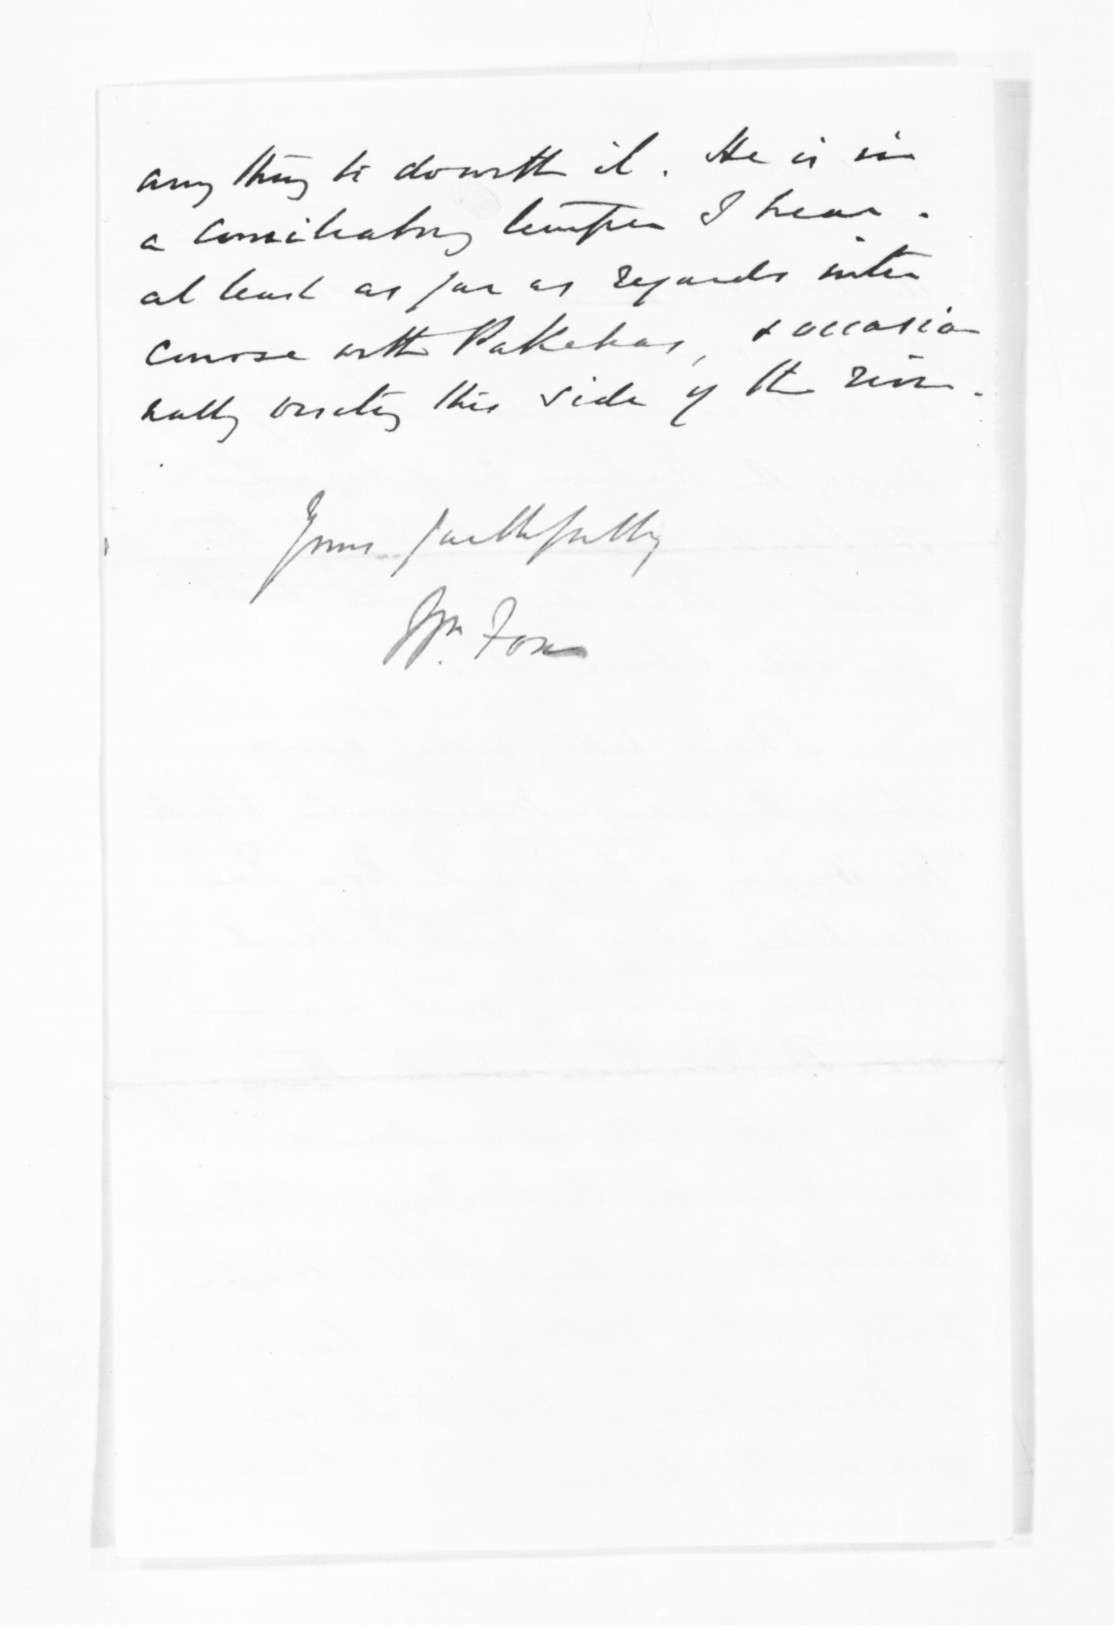 any thing to do with it. He is in
a conciliatory temper I hear.
at least as far as regards inter
course with Pakehas, & occasio
nally visiting this side of the river.
Yours faithfully
Wm. Fox